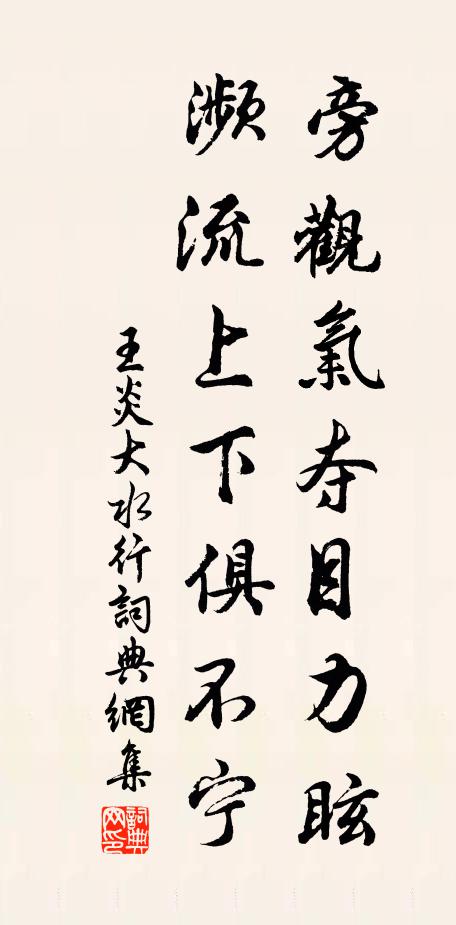 旁觀氣夺目力眩
瀕流上下俱不宁
王炎大水行詞典網集
詞典網印